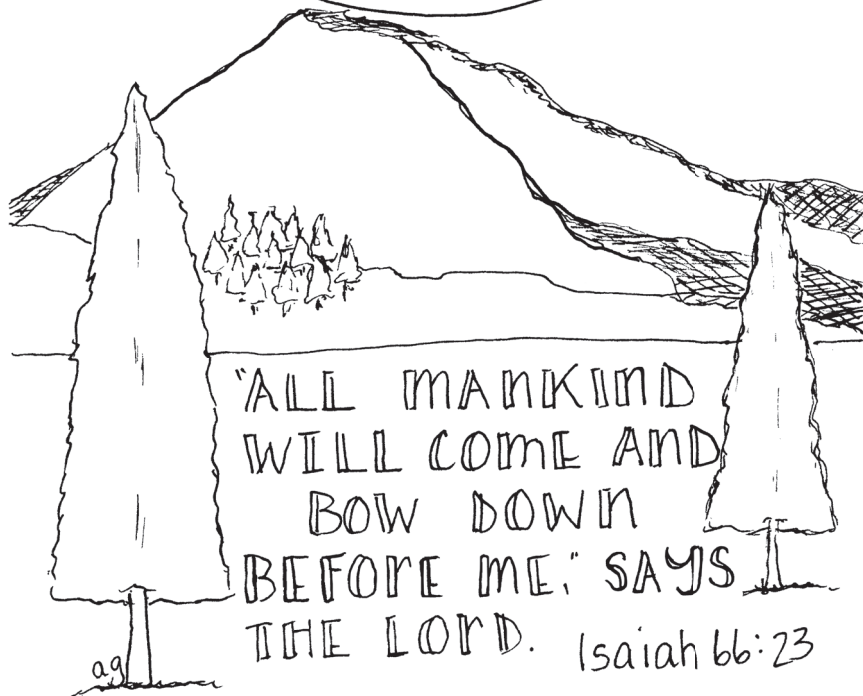 "ALL MANKIND
WILL COME AND
BOW DOWN
BEFORE ME," SAYS
THE LORD.
Isaiah 66:23
ag